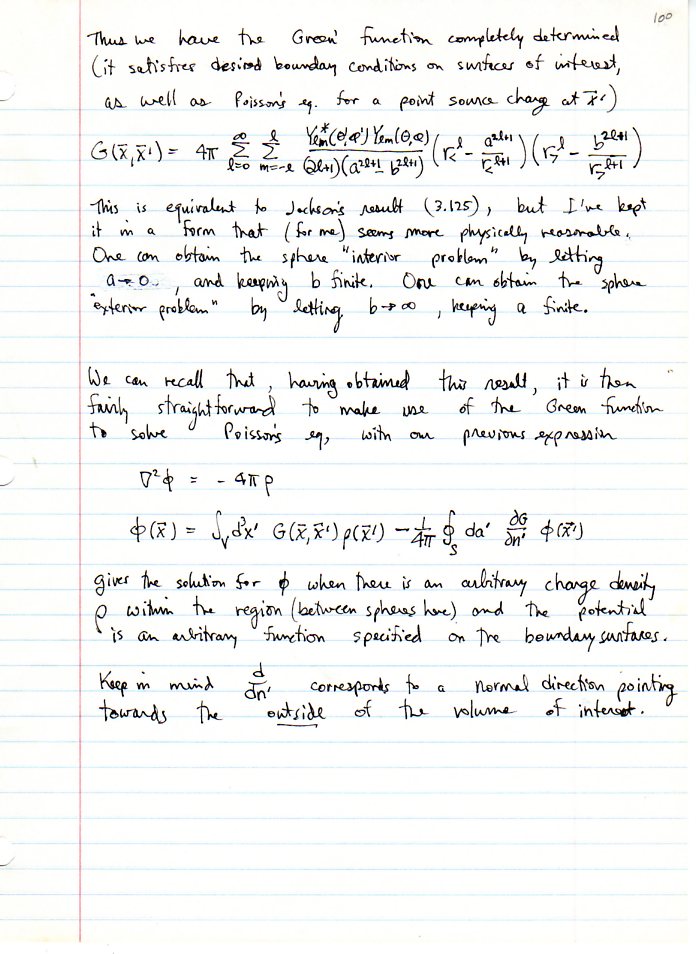 100
Thus we have the Green' function completely determined
(it satisfies desired boundary conditions on surfaces of interest,
as well as Poisson's eq. for a point source charge at x⃗')
G(x̄,x̄') = 4π ∑_{l=0}^{∞} ∑_{m=-l}^{l} Y_{lm}^*(θ',φ') Y_{lm}(θ,φ) / ((2l+1)(a^{2l+1} - b^{2l+1})) (r_<^l - a^{2l+1}/r_<^{l+1}) (r_>^l - b^{2l+1}/r_>^{l+1})
This is equivalent to Jackson's result (3.125), but I've kept
it in a form that (for me) seems more physically reasonable.
One can obtain the sphere "interior problem" by letting
a→0, and keeping b finite. One can obtain the sphere
"exterior problem" by letting b→∞, keeping a finite.
We can recall that, having obtained this result, it is then
fairly straightforward to make use of the Green function
to solve Poisson's eq, with our previous expression
∇²φ = - 4πρ
φ(x̄) = ∫_V d³x' G(x̄,x̄') ρ(x̄') - 1/4π ∮_S da' ∂G/∂n' φ(x̄')
gives the solution for φ when there is an arbitrary charge density
ρ within the region (between spheres here) and the potential
is an arbitrary function specified on the boundary surfaces.
Keep in mind d/dn' corresponds to a normal direction pointing
towards the outside of the volume of interest.